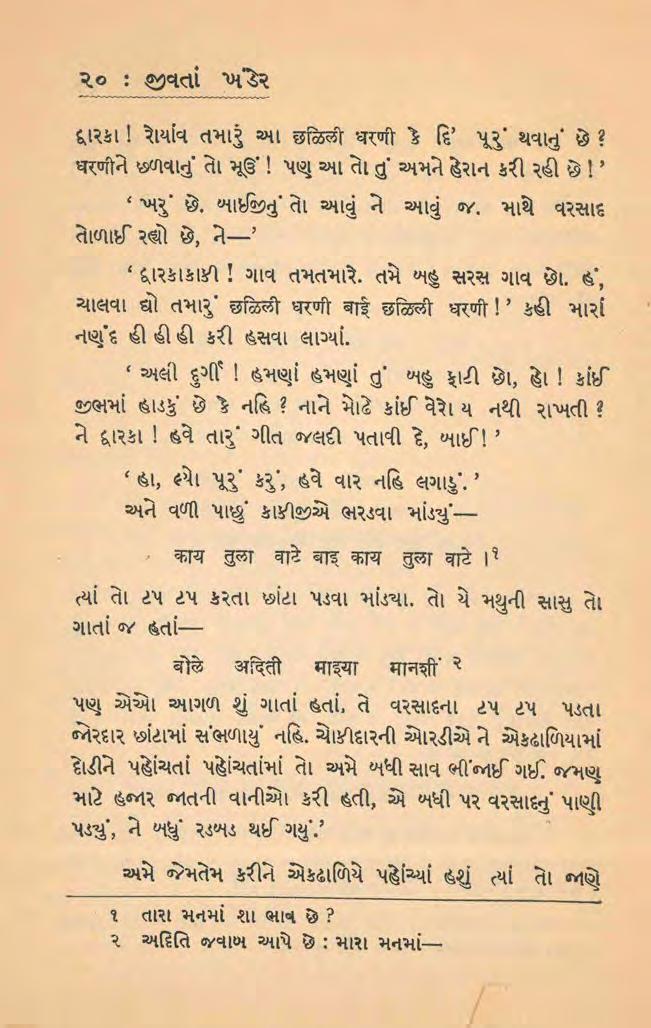 ૨૦ : જીવતાં ખંડેર
દ્વારકા! રોયાંવ તમારું આ छळिली धरणी કે દિ' પૂરું થવાનું છે?
धरणीને છળવાનું તો મૂઉં! પણ આ તો તું અમને હેરાન કરી રહી છે!'
‘ ખરું છે. બાઈજીનું તો આવું ને આવું જ. માથે વરસાદ
તોળાઈ રહ્યો છે, ને—’
‘ દ્વારકાકાકી! ગાવ તમતમારે. તમે બહુ સરસ ગાવ છો. હં,
ચાલવા દ્યો તમારું छळिली धरणी बाई छळिली धरणी!' કહી મારાં
નણંદ હી હી હી કરી હસવા લાગ્યાં.
‘ અલી દુર્ગી! હમણાં હમણાં તું બહુ ફાટી છો, હો! કાંઈ
જીભમાં હાડકું છે કે નહિ? નાને મોઢે કાંઈ વેરો ય નથી રાખતી?
ને દ્વારકા! હવે તારું ગીત જલદી પતાવી દે, બાઈ!’
‘ હા, લ્યો પૂરું કરું, હવે વાર નહિ લગાડું.’
અને વળી પાછું કાકીજીએ ભરડવા માંડયું—
काय तुला वाटे बाइ काय तुला वाटे ।૧
ત્યાં તો ટપ ટપ કરતા છાંટા પડવા માંડ્યા. તો યે મથુની સાસુ તો
ગાતાં જ હતાં—
बोले अदिती माझ्या मानशीं ૨
પણ એઓ આગળ શું ગાતાં હતાં, તે વરસાદના ટપ ટપ પડતા
જોરદાર છાંટામાં સંભળાયું નહિ. ચોકીદારની ઓરડીએ ને એકઢાળિયામાં
દોડીને પહોંચતાં પહોંચતાંમાં તો અમે બધી સાવ ભીંજાઈ ગઈ. જમણ
માટે હજાર જાતની વાનીઓ કરી હતી, એ બધી પર વરસાદનું પાણી
પડ્યું, ને બધું રડબડ થઈ ગયું.’
અમે જેમતેમ કરીને એકઢાળિયે પહોંચ્યાં હશું ત્યાં તો જાણે
૧ તારા મનમાં શા ભાવ છે?
૨ અદિતિ જવાબ આપે છે : મારા મનમાં—